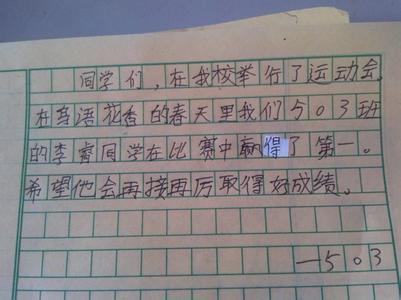 同学们，在我校举行了运动会，
在鸟语花香的春天里我们503班
的李睿同学在比赛中赢得了第一。
希望他会再接再厉取得好成绩。
—503